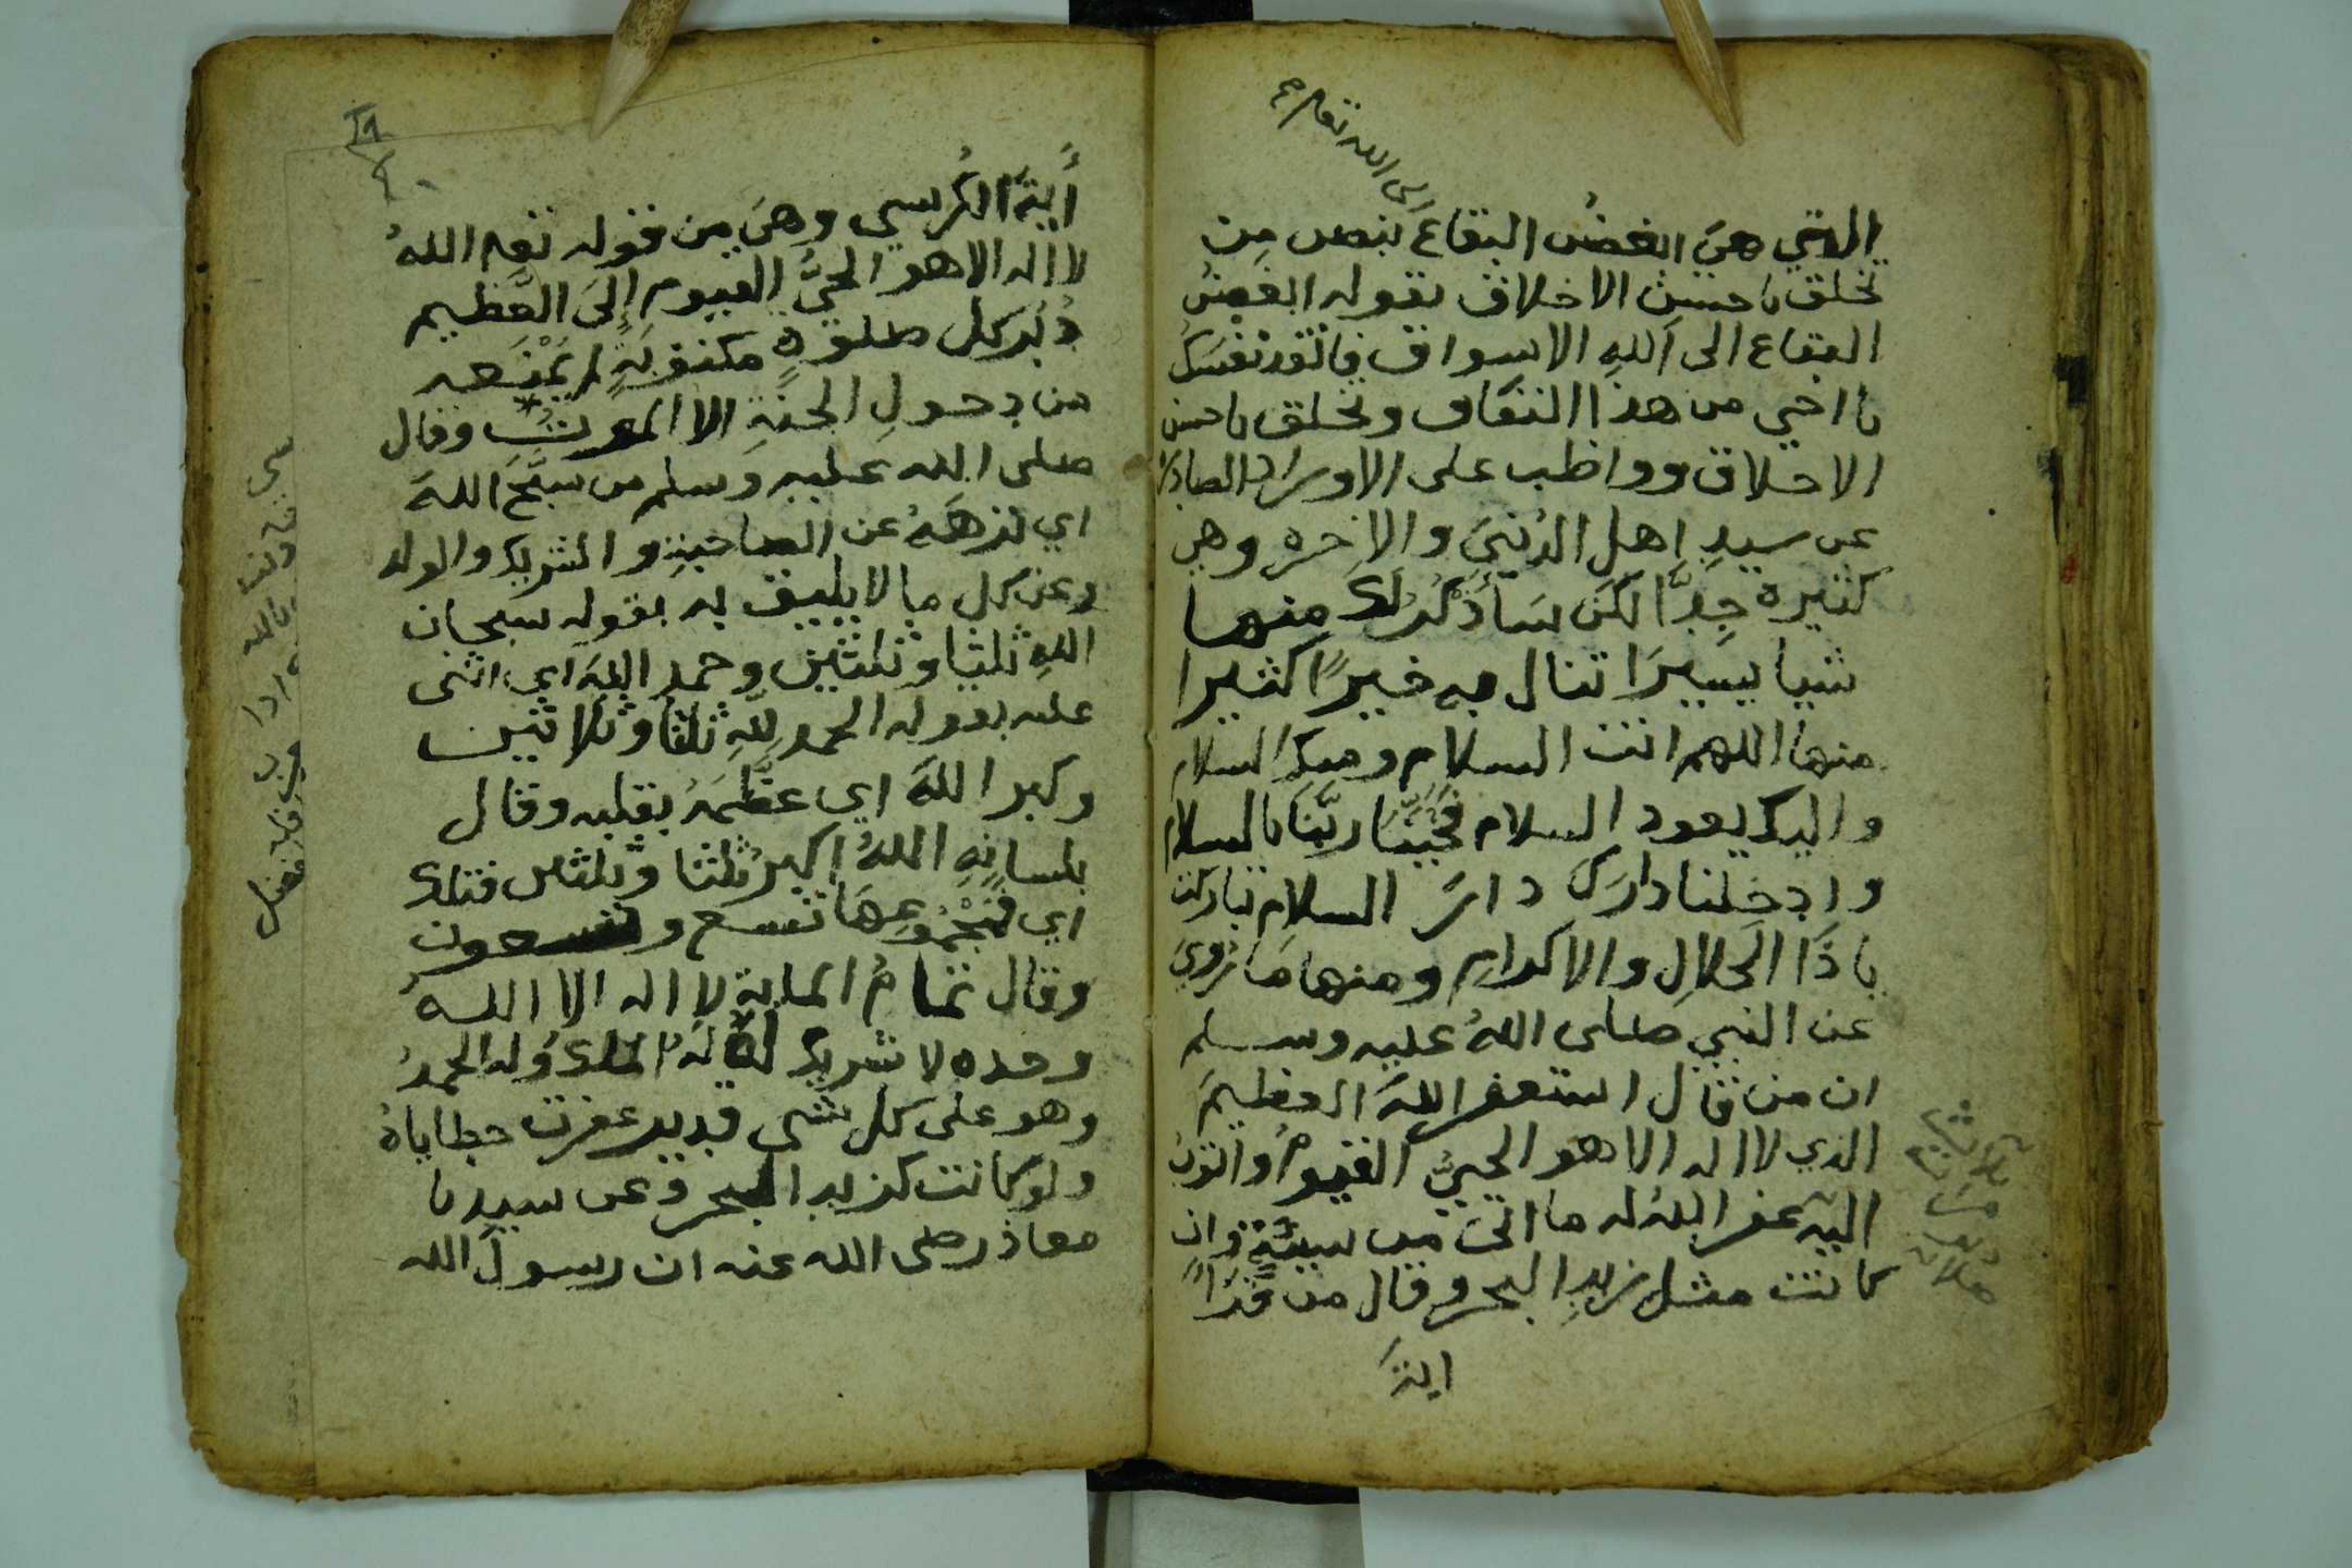 الى الله تعم صح
التي هي ابغض البقاع بنص من
تخلق باحسن الاخلاق بقوله ابغض
البقاع الى الله الاسواق فانقد نفسك
يا اخي من هذا النفاق وتخلق باحسن
الاخلاق وواظب على الاوراد الصادرة
عن سيدِ اهل الدُنيَى والاخره وهي
كثيرة جِدًّا لكن سَأذكرُ لك منها
شيا يسِيرَا تنال به خيرًا كثيرا
منها اللهم انت السلام ومنك السلام
واليك يعود السلام فحَيِّنَا ربَّنَا بالسلام
وادخلنا دارك دارَ السلامِ تباركت
ياذَا الجلالِ والاكرامِ ومنها مَا رُوِيَ
عن النبي صلى اللهُ عليه وسلم
ان من قال استغفر اللهَ العظيمَ
الذي لا اله الا هو الحيُّ القيومُ واتوبُ
اليه غفر اللهُ له ما اتى من سيئةٍ وان
كانت مثل زبدِ البحر وقال من قَرَأَ
ايةَ
أيةَ الكُرسي وهيَ من قوله تعم اللهُ
لا اله الا هو الحيُّ القيوم إلىَ العَظيم
دُبُرَ كل صلوةٍ مكتوبَةٍ لم يَمْنَعه
من دخولِ الجنةِ الا الموت وقال
صلى الله عليه وسلم من سبَّحَ اللهَ
اي نزهَهُ عن الصاحبةِ والشريك والولد
وعن كل ما لا يليق به بقوله سبحان
اللهِ ثلثا وثلثين وحمد اللهَ اي اثنى
عليه بقوله الحمد للّهِ ثلثا وثلاثين
وكبر اللهَ اي عظَّمَهُ بقلبه وقال
بلسانِهِ اللهُ اكبرُ ثلثا وثلثين فتلك
اي فمَجْمُوعِهَا تسع وتسعون
وقال تمامُ الماية لا اله الا اللهُ
وحده لا شريك له لهُ الملك وله الحمدُ
وهو على كل شي قدير غفرت خطاياهُ
ولو كانت كزبد البحر وعن سيدنا
معاذ رضى الله عنه ان رسولَ الله